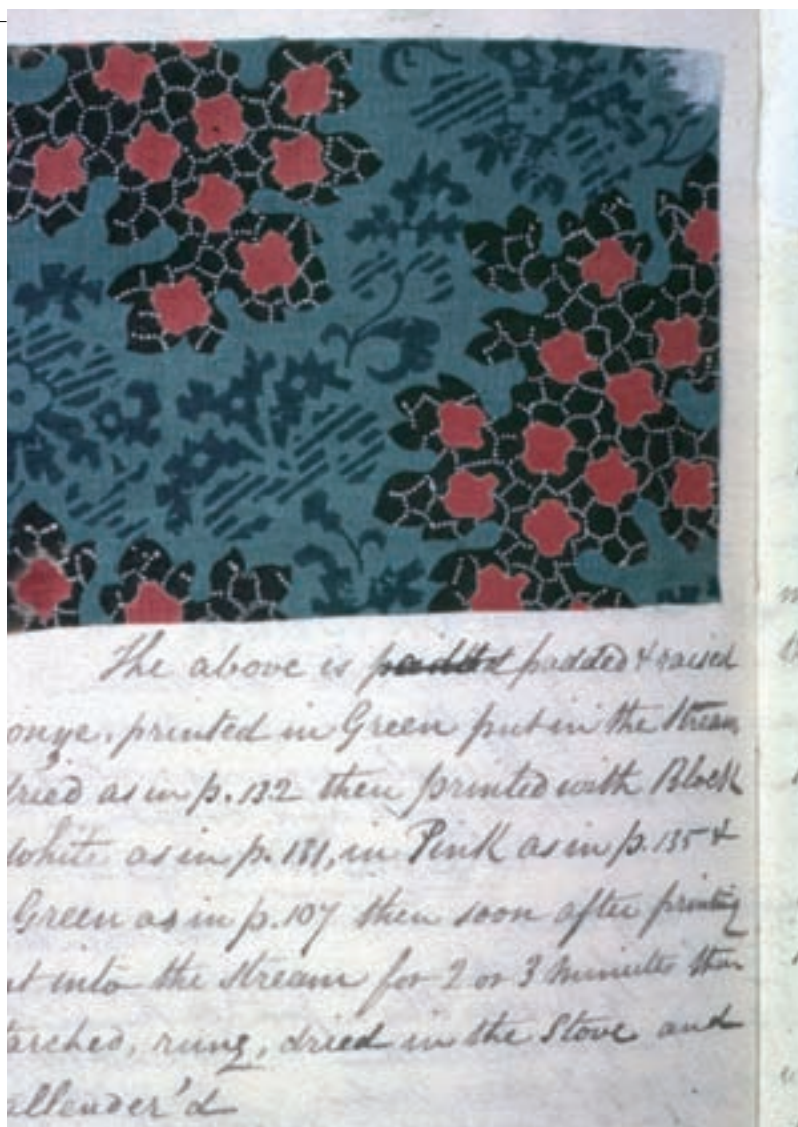 The above is padded padded & raised
onge, printed in Green put in the Stream
dried as in p. 132 then printed with Block
White as in p. 131, in Pink as in p. 135 &
Green as in p. 107 then soon after printing
ut into the Stream for 2 or 3 Minutes then
tarched, rung, dried in the Stove and
allender'd